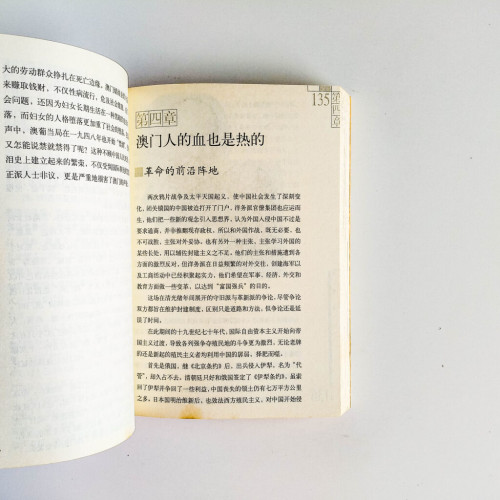 大的劳动群众挣扎在死亡边缘，澳门
来赚取钱财，不仅性病流行，危及社会
会问题，还因为妇女长期生活在一
落，而妇女的人格堕落更加重了社会的
声中，澳葡当局在一九四八年也开始
又怎能说禁就禁得了呢？这种不顾中国人
泪史上建立起来的繁荣，不仅受到国际
正派人士非议，更是严重地损害了澳门的声
135
第四章
第四章
澳门人的血也是热的
革命的前沿阵地
两次鸦片战争及太平天国起义，使中国社会发生了深刻变
化，闭关锁国的中国被迫打开了门户，洋务派官僚集团也应运而
生，他们把一些新的观念引入思想界，认为外国人侵中国不过是
要求通商，并非推翻现存政权，所以和外国作战，既无必要，也
不可战胜，主张对外妥协，也有另外一种主张，主张学习外国的
某些长处，用以辅佐封建主义之不足，他们的主张和措施遭到各
方面的激烈反对，但洋务派在日益频繁的对外交往，创建海军以
及工商活动中已经积聚起实力，他们希望在军事、经济、外交和
教育方面做一些变革，以达到“富国强兵”的目的。
这场在清光绪年间展开的守旧派与革新派的争论，尽管争论
双方都旨在维护封建制度，区别只是道路和方法，但争论还是延
续了时间。
在此期间的十九世纪七十年代，国际自由资本主义开始向帝
国主义过渡，导致各列强争夺殖民地的斗争更为激烈，无论老牌
的还是新起的殖民主义者均利用中国的孱弱，择肥而噬。
首先是俄国，继《北京条约》后，出兵侵入伊犁，名为“代
管”，却久占不去，清朝廷只好和俄国签定了《伊犁条约》，虽索
回了伊犁并争回了一些利益，中国丧失的领土仍有七万平方公里
之多。日本国明治维新后，也效法西方殖民主义，对中国开始侵